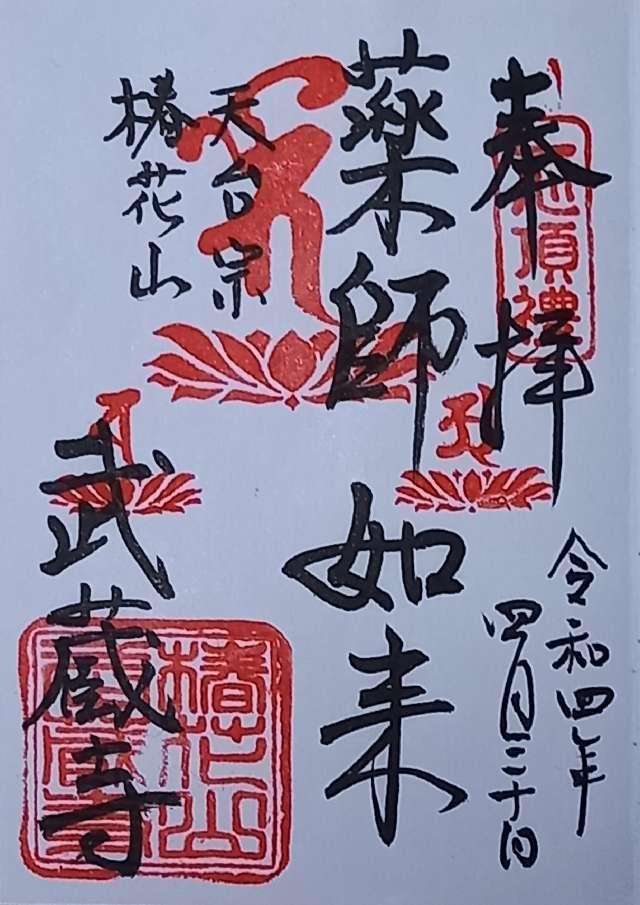 奉拝
令和四年
四月三十日
薬師如来
天台宗
椿花山
武蔵寺
頂禮
椿花山
武蔵寺